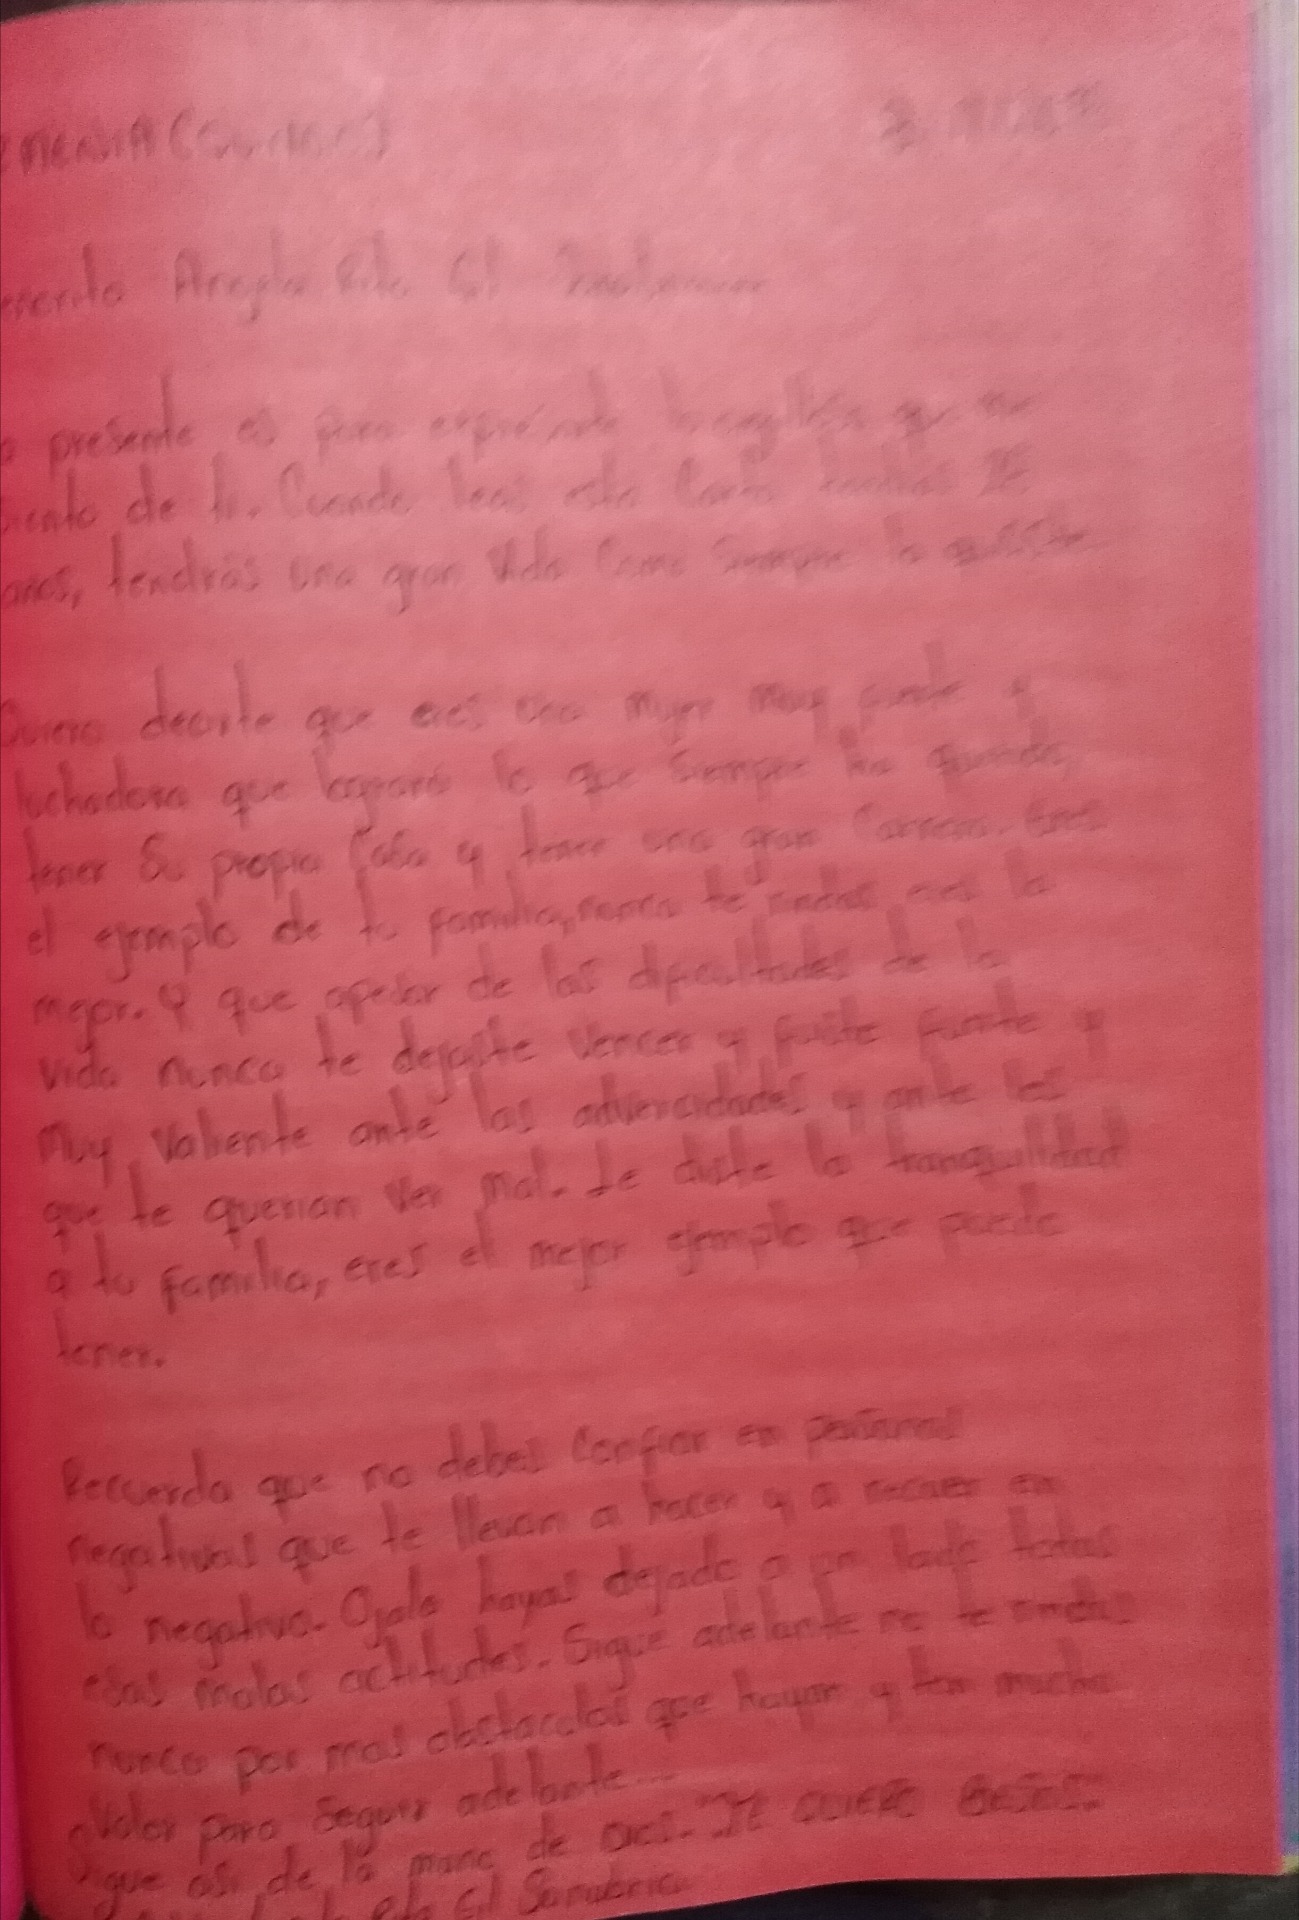 presente es para expresarte
de ti. Cuando leas esta Carta
años, tendrás una gran vida Como Siempre lo
Quiero decirte que eres una mujer muy fuerte y
luchadora que logrará lo que Siempre ha querido,
tener Su propia Casa y tener una gran Carrera. Eres
el ejemplo de tu familia, nunca te rindas, eres la
mejor. Y que apesar de las dificultades de la
vida nunca te dejaste vencer y fuiste fuerte y
muy valiente ante las adversidades y ante los
que te querian ver mal. Le diste la tranquilidad
a tu familia, eres el mejor ejemplo que puede
tener.
Recuerda que no debes Confiar en personas
negativas que te llevan a hacer y a recaer en
lo negativo. Ojala hayas dejado a un lado todas
esas malas actitudes. Sigue adelante no te rindas
nunca por mas obstaculos que hayan y ten mucho
valor para Seguir adelante...
Sigue asi, de la mano de Dios. TE QUIERO
Gil Sanabria